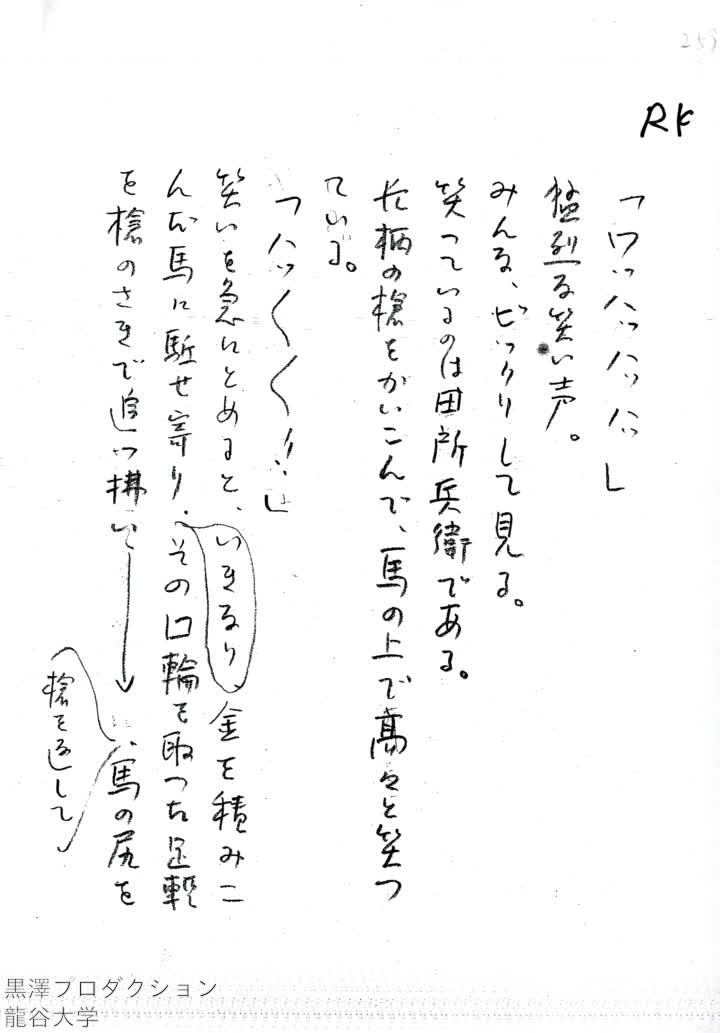 253
RK
「ワッハッハッハッ」
猛烈な笑い声。
みんな、ビックリして見る。
笑っているのは田所兵衛である。
長柄の槍をかいこんで、馬の上で高々と笑っ
ている。
「ハッ〱〱！」
笑いを急にとめると、いきなり、金を積みこ
んだ馬に駈せ寄り、その口輪を取った足軽
を槍のさきで追っ拂い
馬の尻を
槍を返して
黒澤プロダクション
龍谷大学